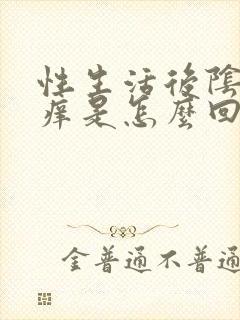 性生活後陰
痒是怎麼回
金普通不普通